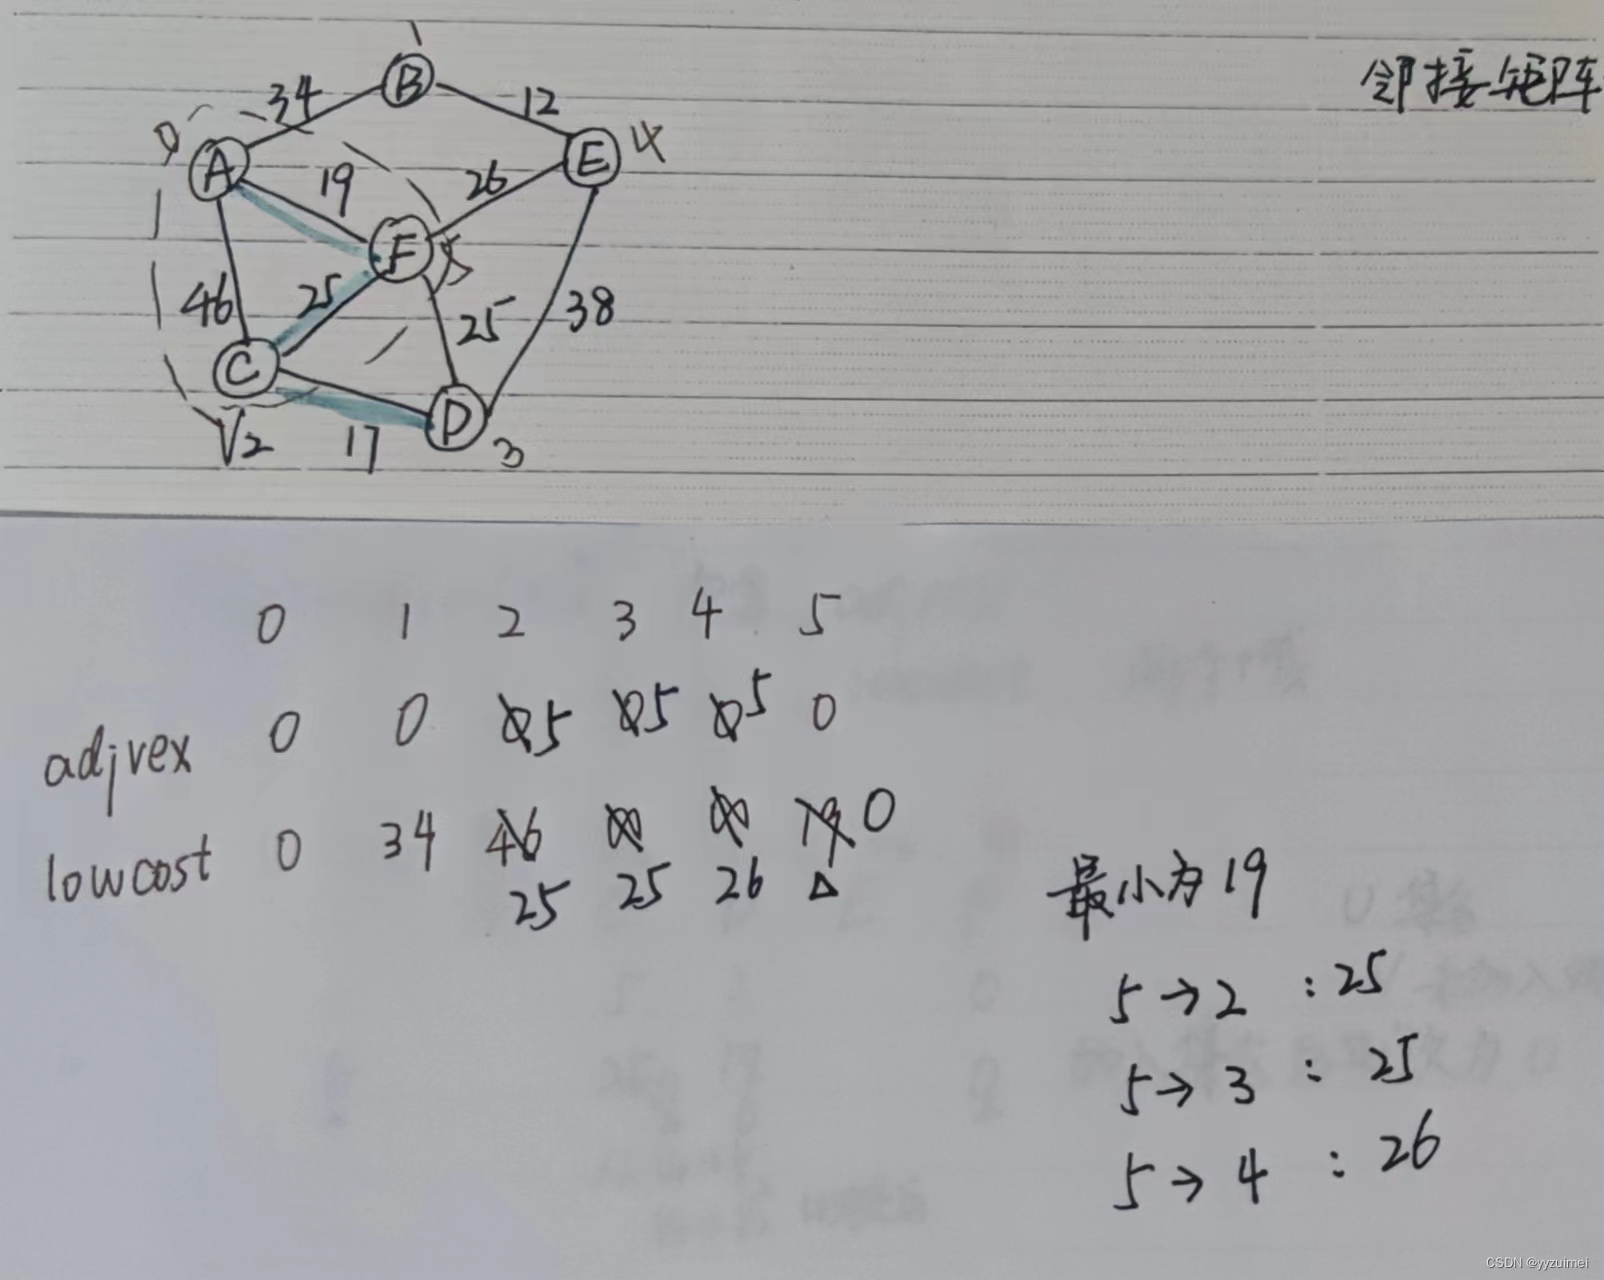 邻接矩阵
B
34 12
0 A E 4
19 26
F 5
46 25 25 38
C
V2 17 D 3
0 1 2 3 4 5
adjvex 0 0 0 5 0 5 0 5 0
lowcost 0 34 46 ∞ ∞ 19 0
25 25 26 Δ
最小为19
5→2 : 25
5→3 : 25
5→4 : 26
CSDN @yyzuimei